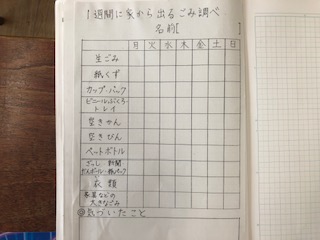 1週間に家から出るごみ調べ
名前[
月 火 水 木 金 土 日
生ごみ
紙くず
カップ・パック
ビニールぶくろ・
トレイ
空きかん
空きびん
ペットボトル
ざっし・新聞
だんボール・紙パック
衣類
家具などの
大きなごみ
◎気づいたこと